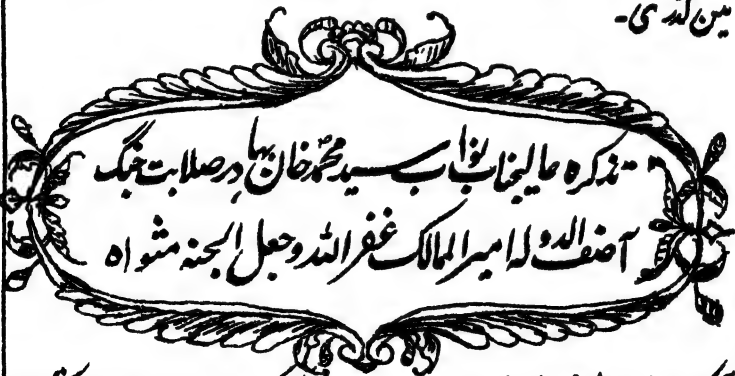 میں گذری۔
تذکرہ عالیجناب نواب سید محمد خان بہادر صلابت جنگ
آصف الدولہ امیر الممالک غفر اللہ وجعل الجنۃ مثواہ